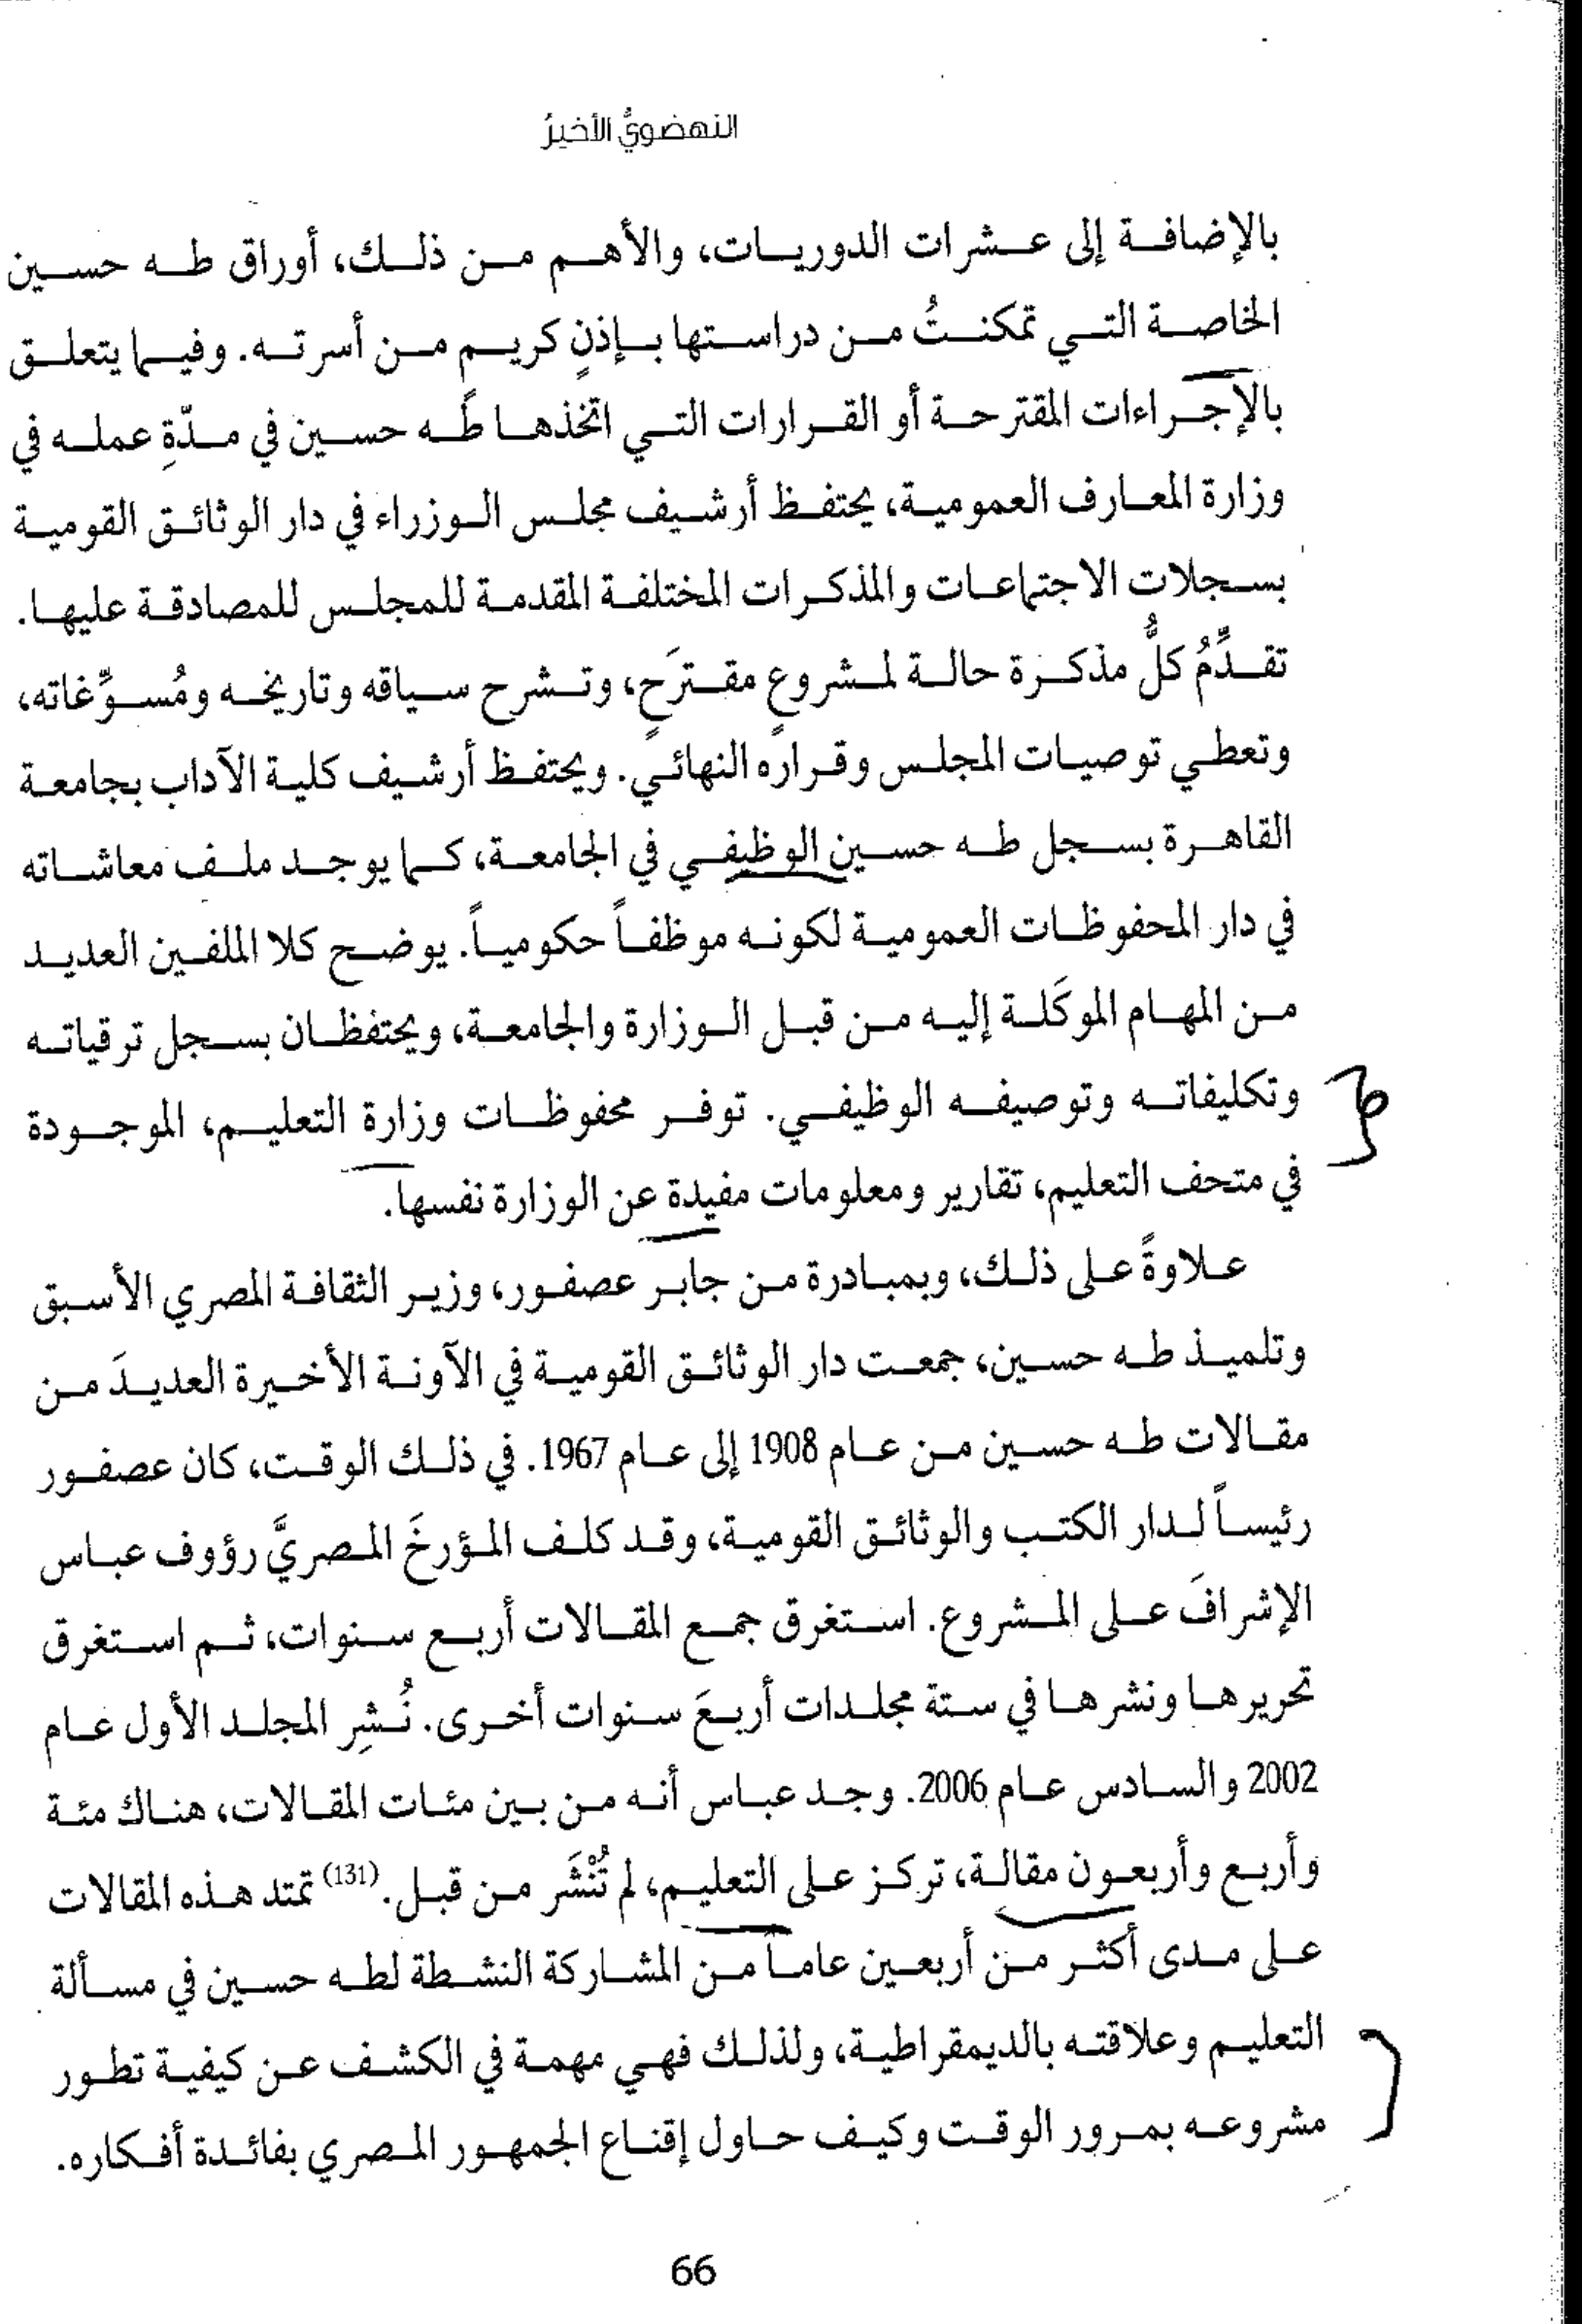 النهضويُّ الأخيرُ
بالإضافة إلى عشرات الدوريات، والأهم من ذلك، أوراق طه حسين
الخاصة التي تمكنتُ من دراستها بإذنٍ كريم من أسرته. وفيما يتعلق
بالإجراءات المقترحة أو القرارات التي اتخذها طه حسين في مدّةِ عمله في
وزارة المعارف العمومية، يحتفظ أرشيف مجلس الوزراء في دار الوثائق القومية
بسجلات الاجتماعات والمذكرات المختلفة المقدمة للمجلس للمصادقة عليها.
تقدِّمُ كلُّ مذكرة حالة لمشروعٍ مقترَحٍ، وتشرح سياقه وتاريخه ومُسوِّغاته،
وتعطي توصيات المجلس وقراره النهائي. ويحتفظ أرشيف كلية الآداب بجامعة
القاهرة بسجل طه حسين الوظيفي في الجامعة، كما يوجد ملف معاشاته
في دار المحفوظات العمومية لكونه موظفاً حكومياً. يوضح كلا الملفين العديد
من المهام الموكَلة إليه من قبل الوزارة والجامعة، ويحتفظان بسجل ترقياته
وتكليفاته وتوصيفه الوظيفي. توفر محفوظات وزارة التعليم، الموجودة
في متحف التعليم، تقارير ومعلومات مفيدة عن الوزارة نفسها.
علاوةً على ذلك، وبمبادرة من جابر عصفور، وزير الثقافة المصري الأسبق
وتلميذ طه حسين، جمعت دار الوثائق القومية في الآونة الأخيرة العديدَ من
مقالات طه حسين من عام 1908 إلى عام 1967. في ذلك الوقت، كان عصفور
رئيساً لدار الكتب والوثائق القومية، وقد كلف المؤرخَ المصريَّ رؤوف عباس
الإشرافَ على المشروع. استغرق جمع المقالات أربع سنوات، ثم استغرق
تحريرها ونشرها في ستة مجلدات أربعَ سنوات أخرى. نُشِر المجلد الأول عام
2002 والسادس عام 2006. وجد عباس أنه من بين مئات المقالات، هناك مئة
وأربع وأربعون مقالة، تركز على التعليم، لم تُنْشَر من قبل.(131) تمتد هذه المقالات
على مدى أكثر من أربعين عاماً من المشاركة النشطة لطه حسين في مسألة
التعليم وعلاقته بالديمقراطية، ولذلك فهي مهمة في الكشف عن كيفية تطور
مشروعه بمرور الوقت وكيف حاول إقناع الجمهور المصري بفائدة أفكاره.
66